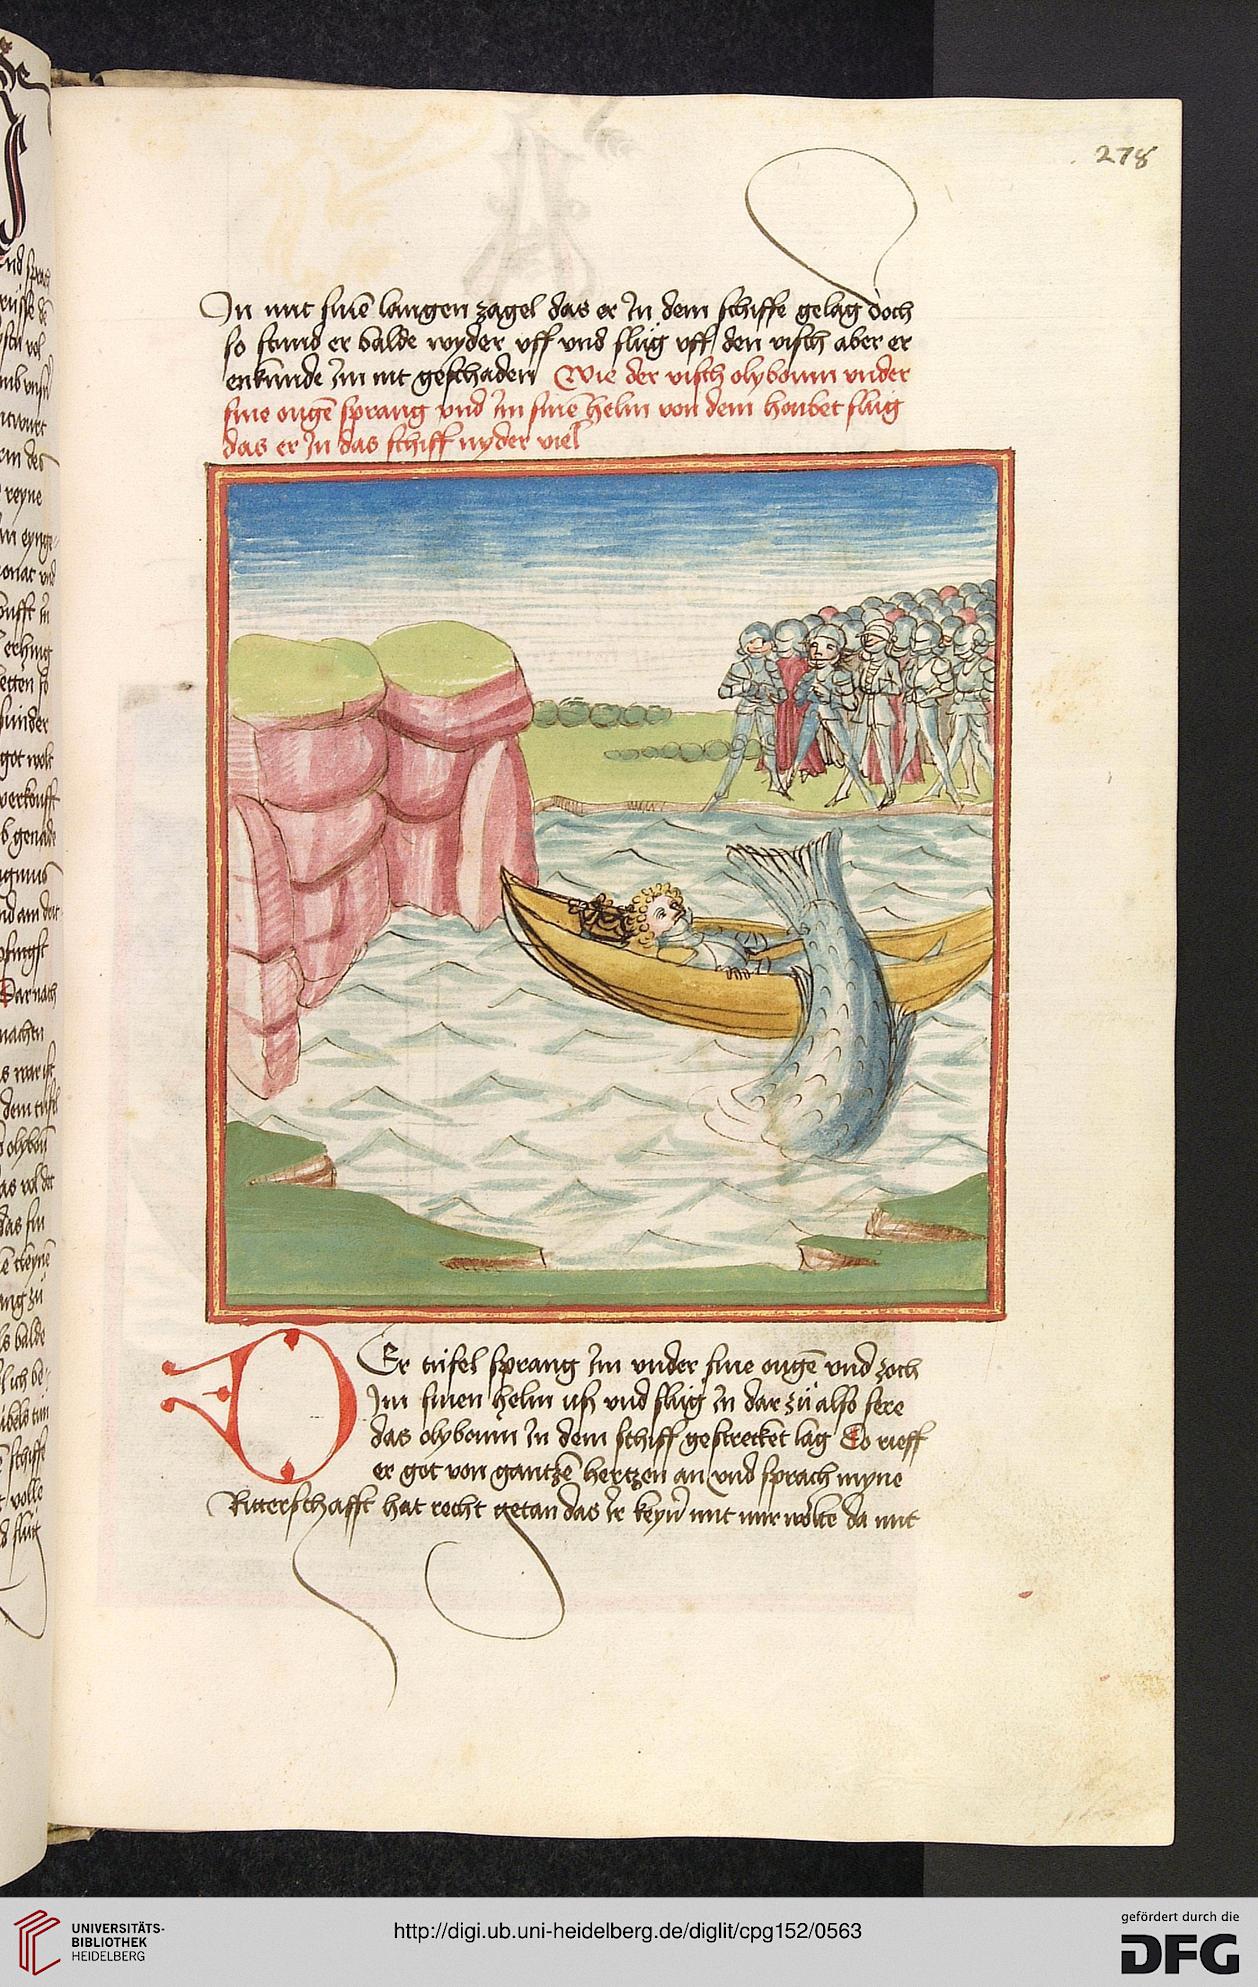 278
In mit sinē langen zagel das er in dem schiffe gelag doch
so stund er balde wyder uff und slug uff den visch aber er
enkunde im nit geschaden Wie der visch olyboum under
sine ougē sprang und im sinē helm von dem houbet slug
das er in das schiff nyder viel
DEr tüfel sprang im under sine ougē und zoch
im sinen helm uß und slug in dar zü also sere
das olyboum in dem schiff gestrecket lag Do rieff
er got von gantzē hertzen an und sprach myne
Ritterschafft hat recht getan das ir keyn mit mir wolte da mit
UNIVERSITÄTS-
BIBLIOTHEK
HEIDELBERG
http://digi.ub.uni-heidelberg.de/diglit/cpg152/0563
gefördert durch die
DFG